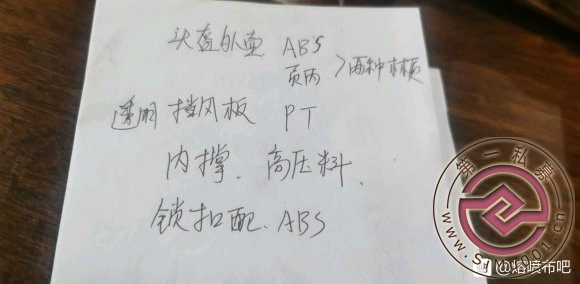 头盔外壳 ABS
页丙 >两种材质
透明 挡风板 PT
内撑. 高压料.
锁扣配. ABS
第一私募
www.simu001.cn
@熔喷布吧